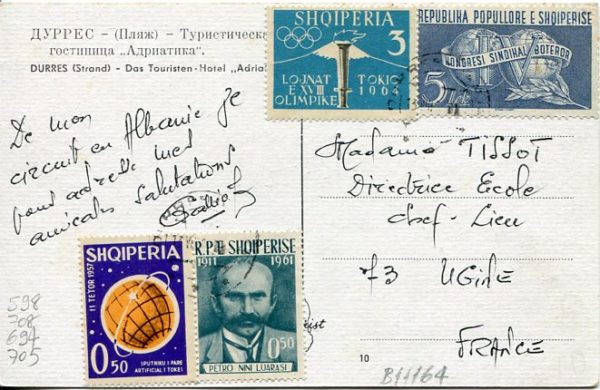 ДУРРЕС – (Пляж) – Туристическ
гостиница „Адриатика“.
DURRES (Strand) – Das Touristen-Hotel „Adria
SHQIPERIA
3
LOJNAT
E XVIII
OLIMPIKE
TOKIO
1964
REPUBLIKA POPULLORE E SHQIPERISE
KONGRESI SINDIKAL BOTEROR
5 Lek
De mon
circuit en Albanie je
vous adresse mes
amicales salutations
Madame TISSOT
Directrice École
Chef-Lieu
73 UGINE
FRANCE
SHQIPERIA
11 TETOR 1957
0.50
SPUTNIKU I PARE
ARTIFICIAL I TOKES
R.P.E SHQIPERISE
1911 1961
0.50
PETRO NINI LUARASI
ist
598
708
694
705
10
B11164